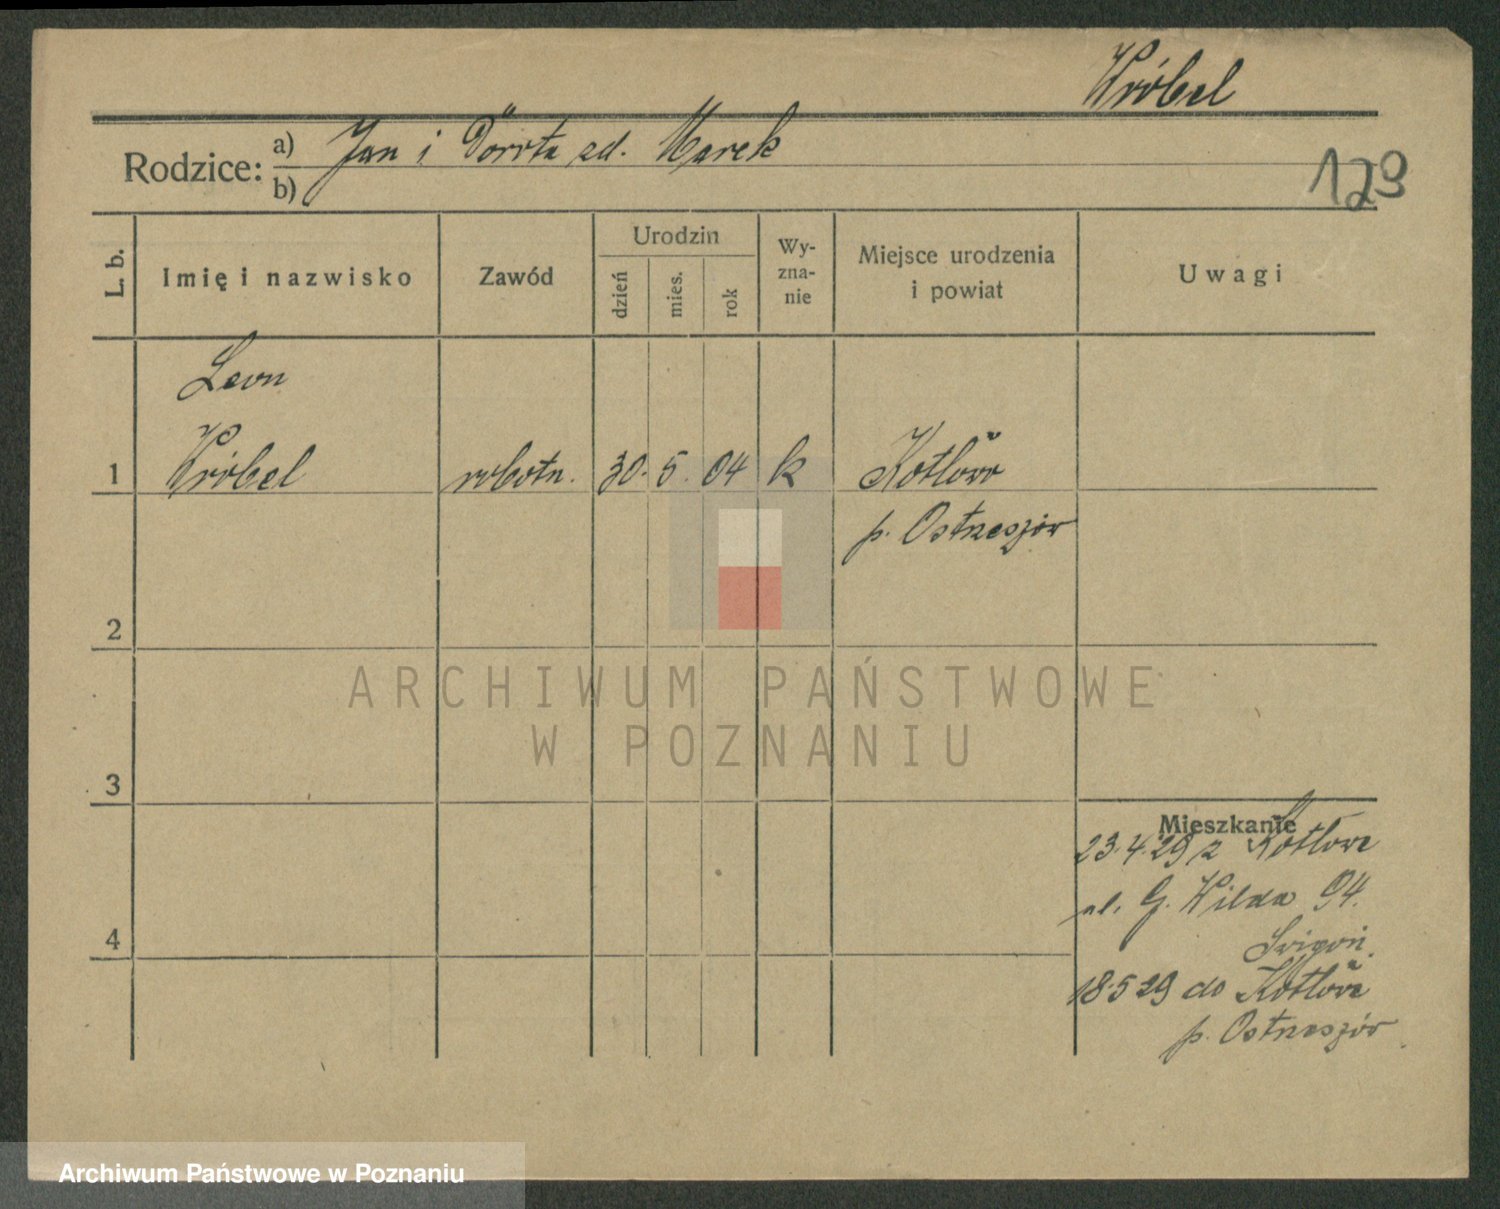 Wróbel
Rodzice: a) Jan i Dorota zd. Marek
b)
129
L. b.
Imię i nazwisko
Zawód
Urodzin
dzień
mies.
rok
Wy-
zna-
nie
Miejsce urodzenia
i powiat
Uwagi
Leon
1 Wróbel robotn. 30. 5. 04 k Kotłow
p. Ostrzeszów
2
3
4
Mieszkanie
23.4.29 z Kotłowa
ul. G. Wilda 94.
18.5 29 do Kotłowa
p. Ostrzeszów
ARCHIWUM PAŃSTWOWE
W POZNANIU
Archiwum Państwowe w Poznaniu